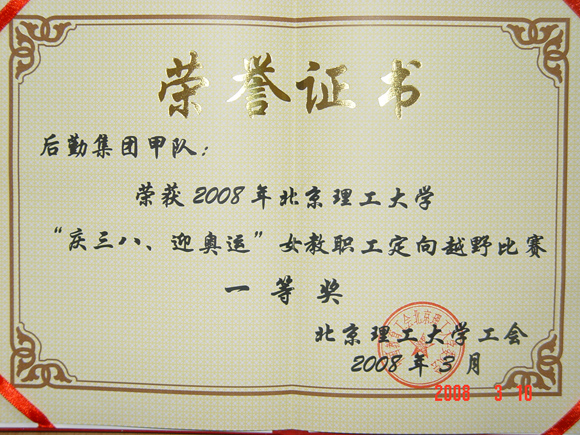 荣誉证书
后勤集团甲队：
荣获2008年北京理工大学
“庆三八、迎奥运”女教职工定向越野比赛
一等奖
北京理工大学工会
2008年3月
2008 3 10